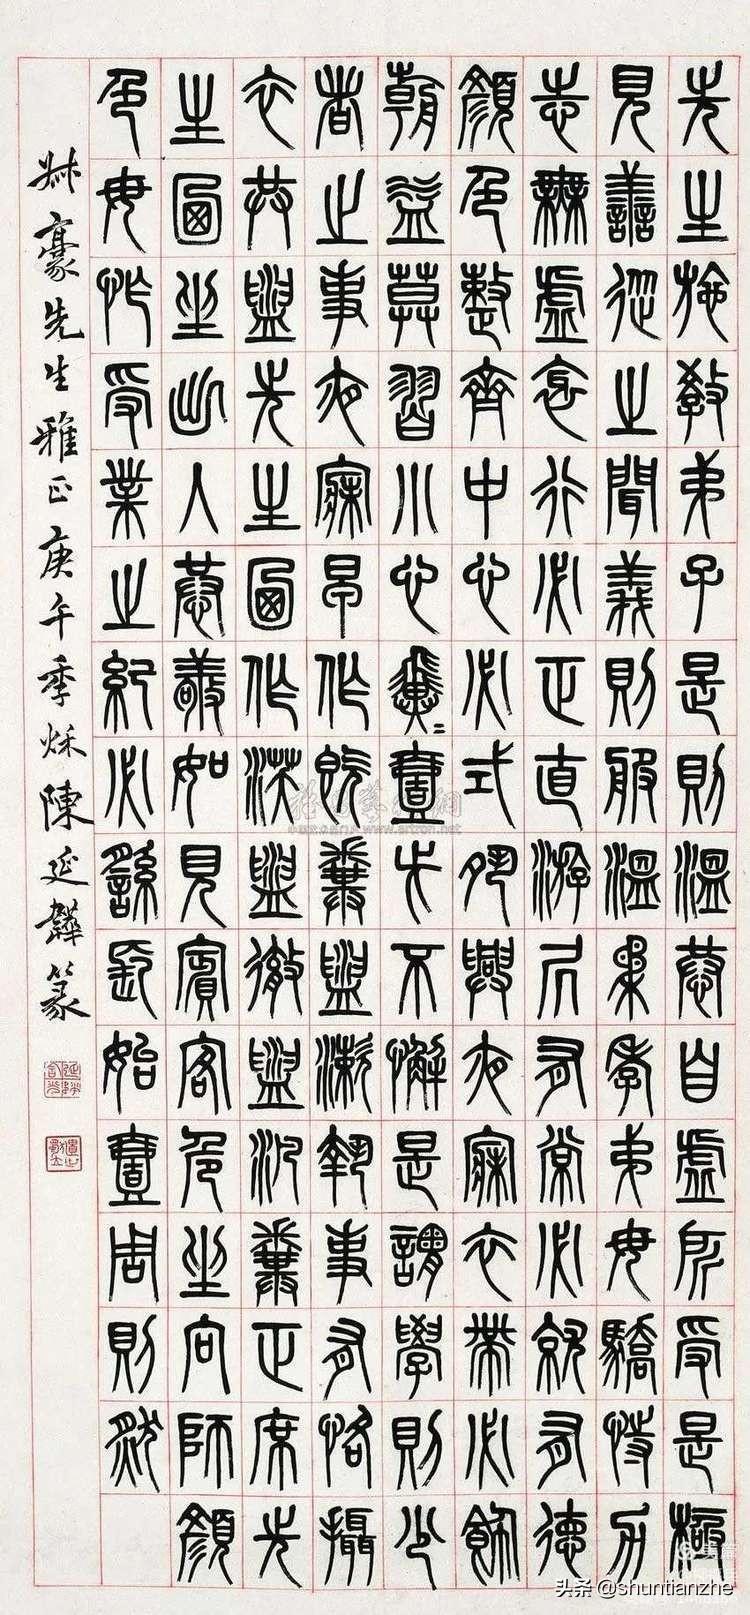 先生施教弟子是則溫恭自虛所受是極
見善從之聞義則服溫柔孝弟毋驕恃力
志無虛衺行必正直游凥有常必就有德
顏色整齊中心必式夙興夜寐衣帶必飾
朝益莫習小心翼=壹此不懈是謂學則少
者之事夜寐早作既糞盥漱執事有恪攝
衣共盥先生乃作沃盥徹盥汎糞正席先
生乃坐出入恭敬如見賓客危坐向師顏
色毋怍受業之紀必繇長始壹周則然
叔豪先生雅正庚午季秌陳延韡篆
www.artron.net
头条 @shuntianzhe